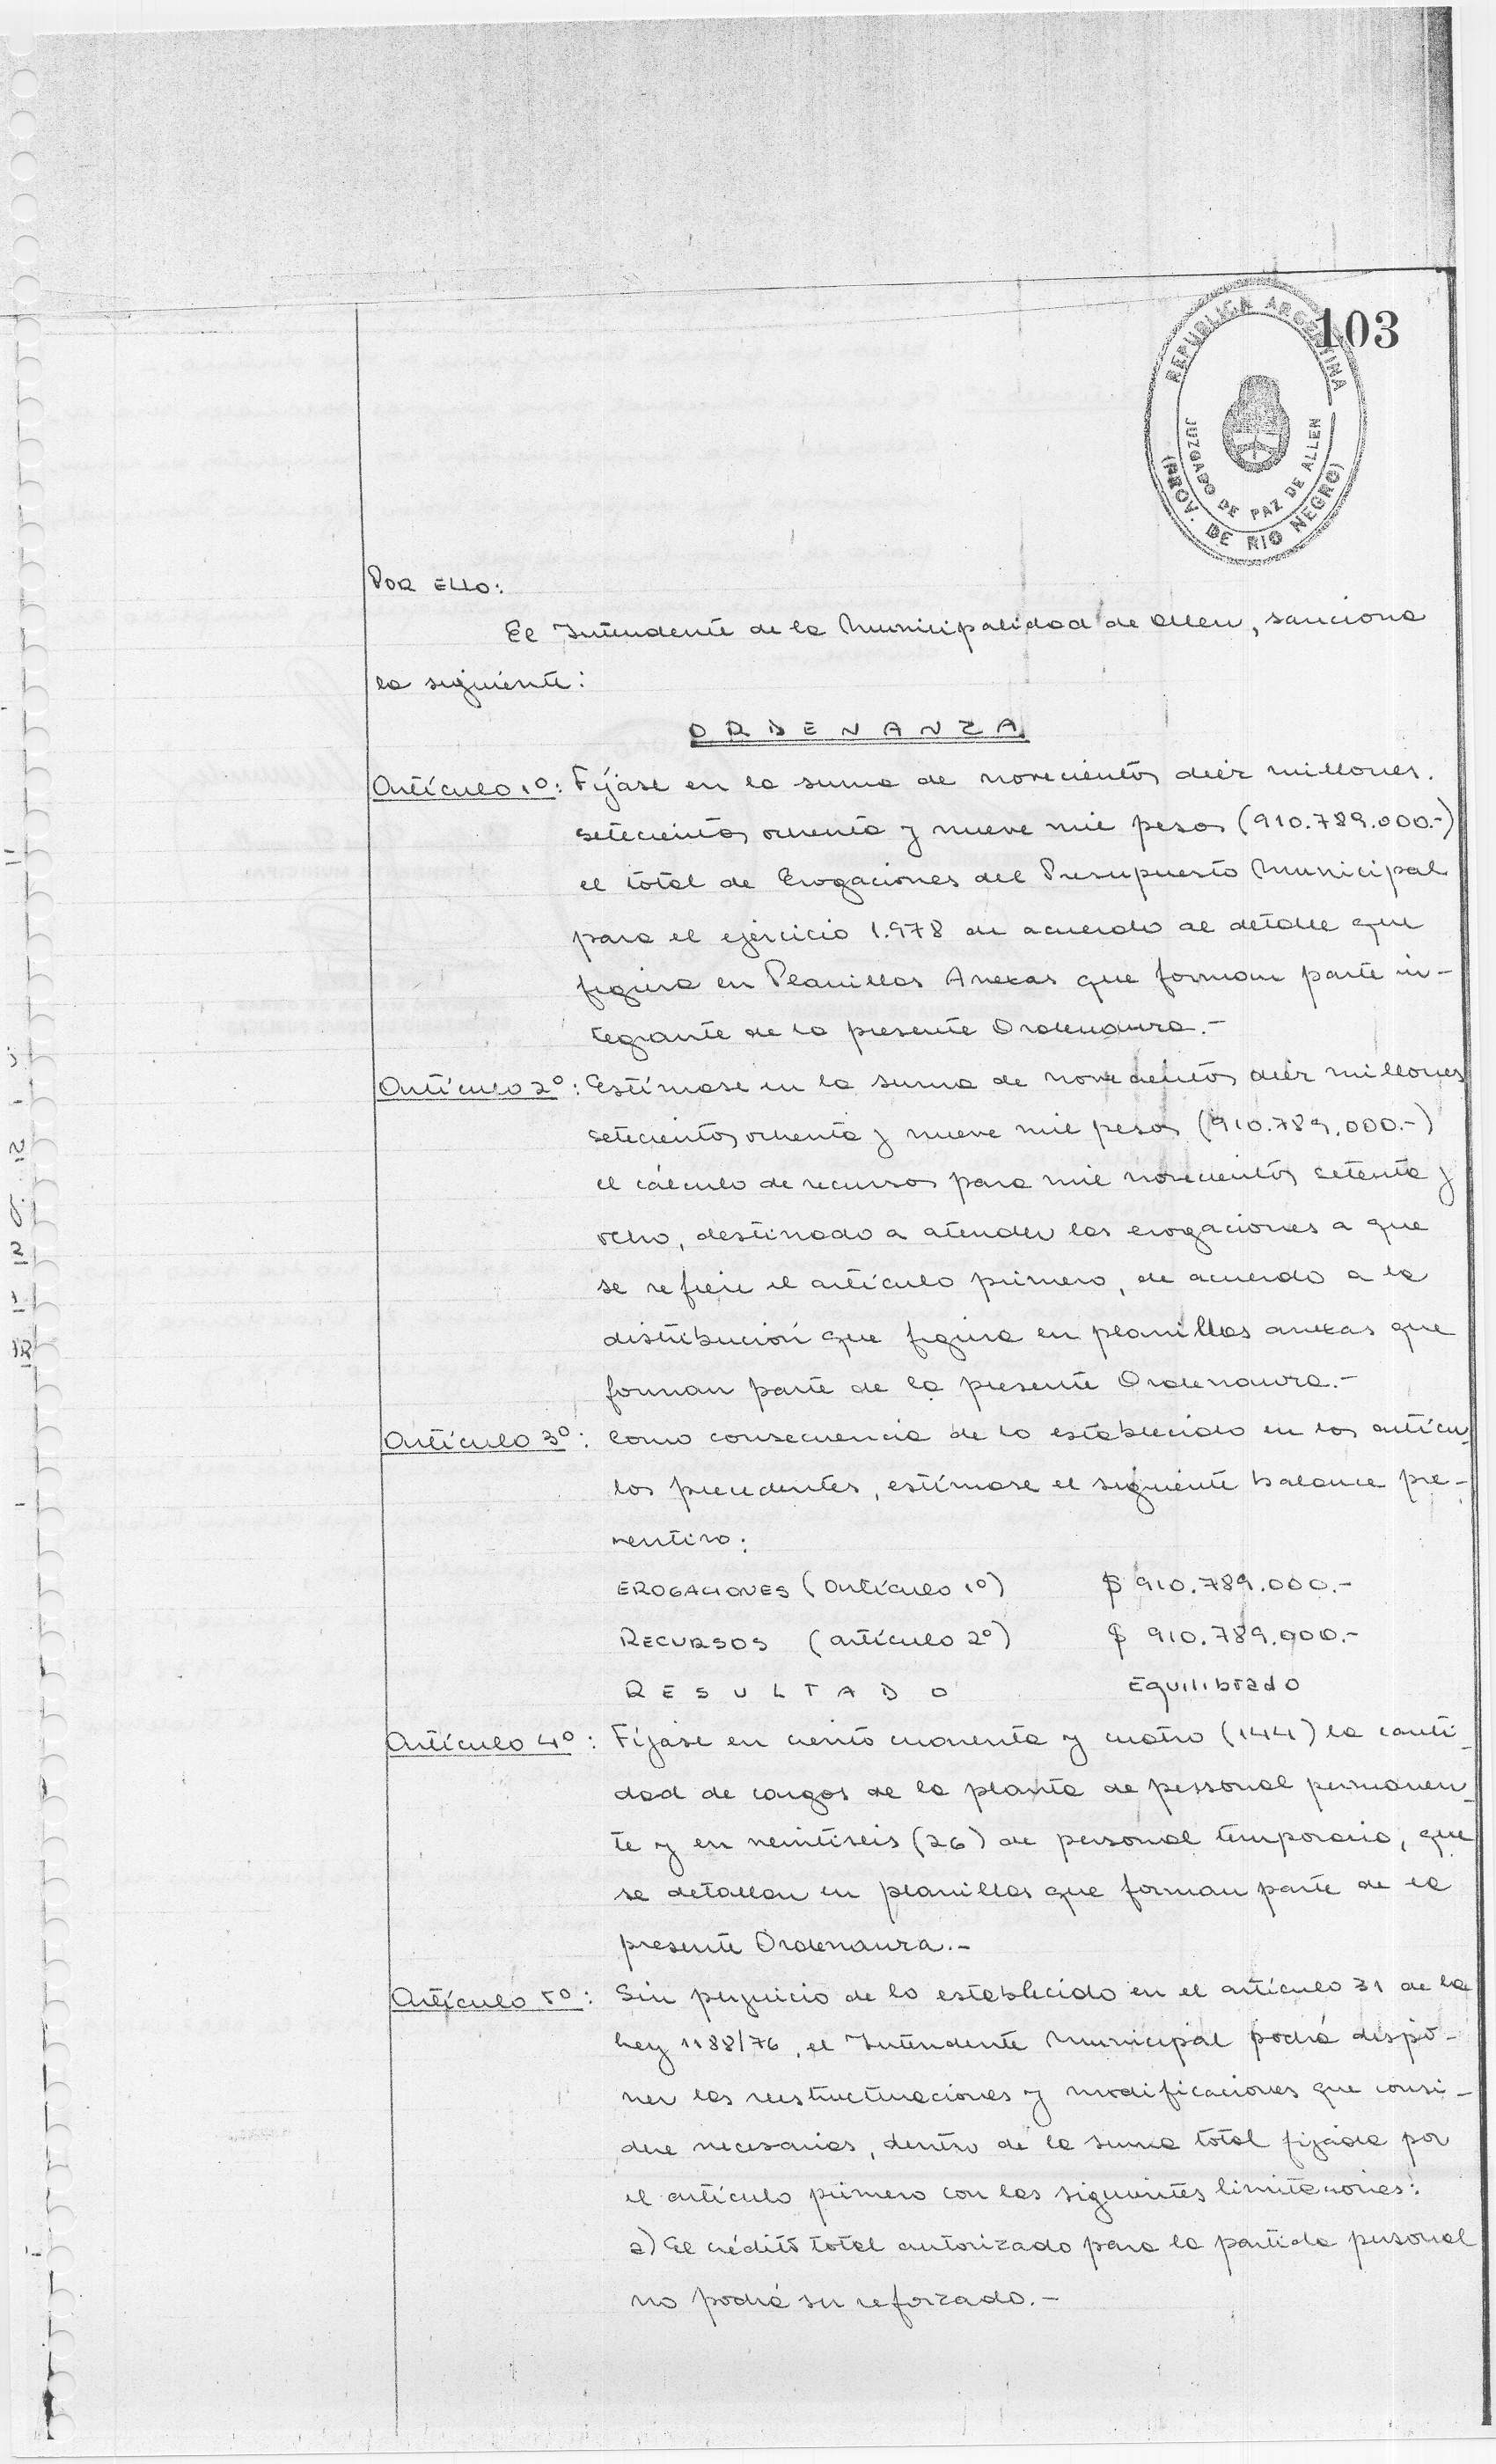 103
REPUBLICA ARGENTINA
JUZGADO DE PAZ DE ALLEN
(PROV. DE RIO NEGRO)
POR ELLO:
El Intendente de la Municipalidad de Allen, sanciona
la siguiente:
ORDENANZA
Artículo 1º: Fíjase en la suma de novecientos diez millones.
setecientos ochenta y nueve mil pesos (910.789.000.-)
el total de Erogaciones del Presupuesto Municipal
para el ejercicio 1.978 de acuerdo al detalle que
figura en Planillas Anexas que forman parte in-
tegrante de la presente Ordenanza.-
Artículo 2º: Estímase en la suma de novecientos diez millones
setecientos ochenta y nueve mil pesos (910.789.000.-)
el cálculo de recursos para mil novecientos setenta y
ocho, destinado a atender las erogaciones a que
se refiere el artículo primero, de acuerdo a la
distribución que figura en planillas anexas que
forman parte de la presente Ordenanza.-
Artículo 3º: Como consecuencia de lo establecido en los artícu-
los precedentes, estímase el siguiente balance pre-
ventivo:
EROGACIONES (Artículo 1º) $ 910.789.000.-
RECURSOS (artículo 2º) $ 910.789.000.-
RESULTADO Equilibrado
Artículo 4º: Fíjase en ciento cuarenta y cuatro (144) la canti-
dad de cargos de la planta de personal permanen-
te y en veintiseis (26) de personal temporario, que
se detallan en planillas que forman parte de la
presente Ordenanza.-
Artículo 5º: Sin perjuicio de lo establecido en el artículo 31 de la
Ley 1188/76, el Intendente Municipal podrá dispo-
ner las reestructuraciones y modificaciones que consi-
dere necesarias, dentro de la suma total fijada por
el artículo primero con las siguientes limitaciones:
a) El crédito total autorizado para la partida personal
no podrá ser reforzado.-